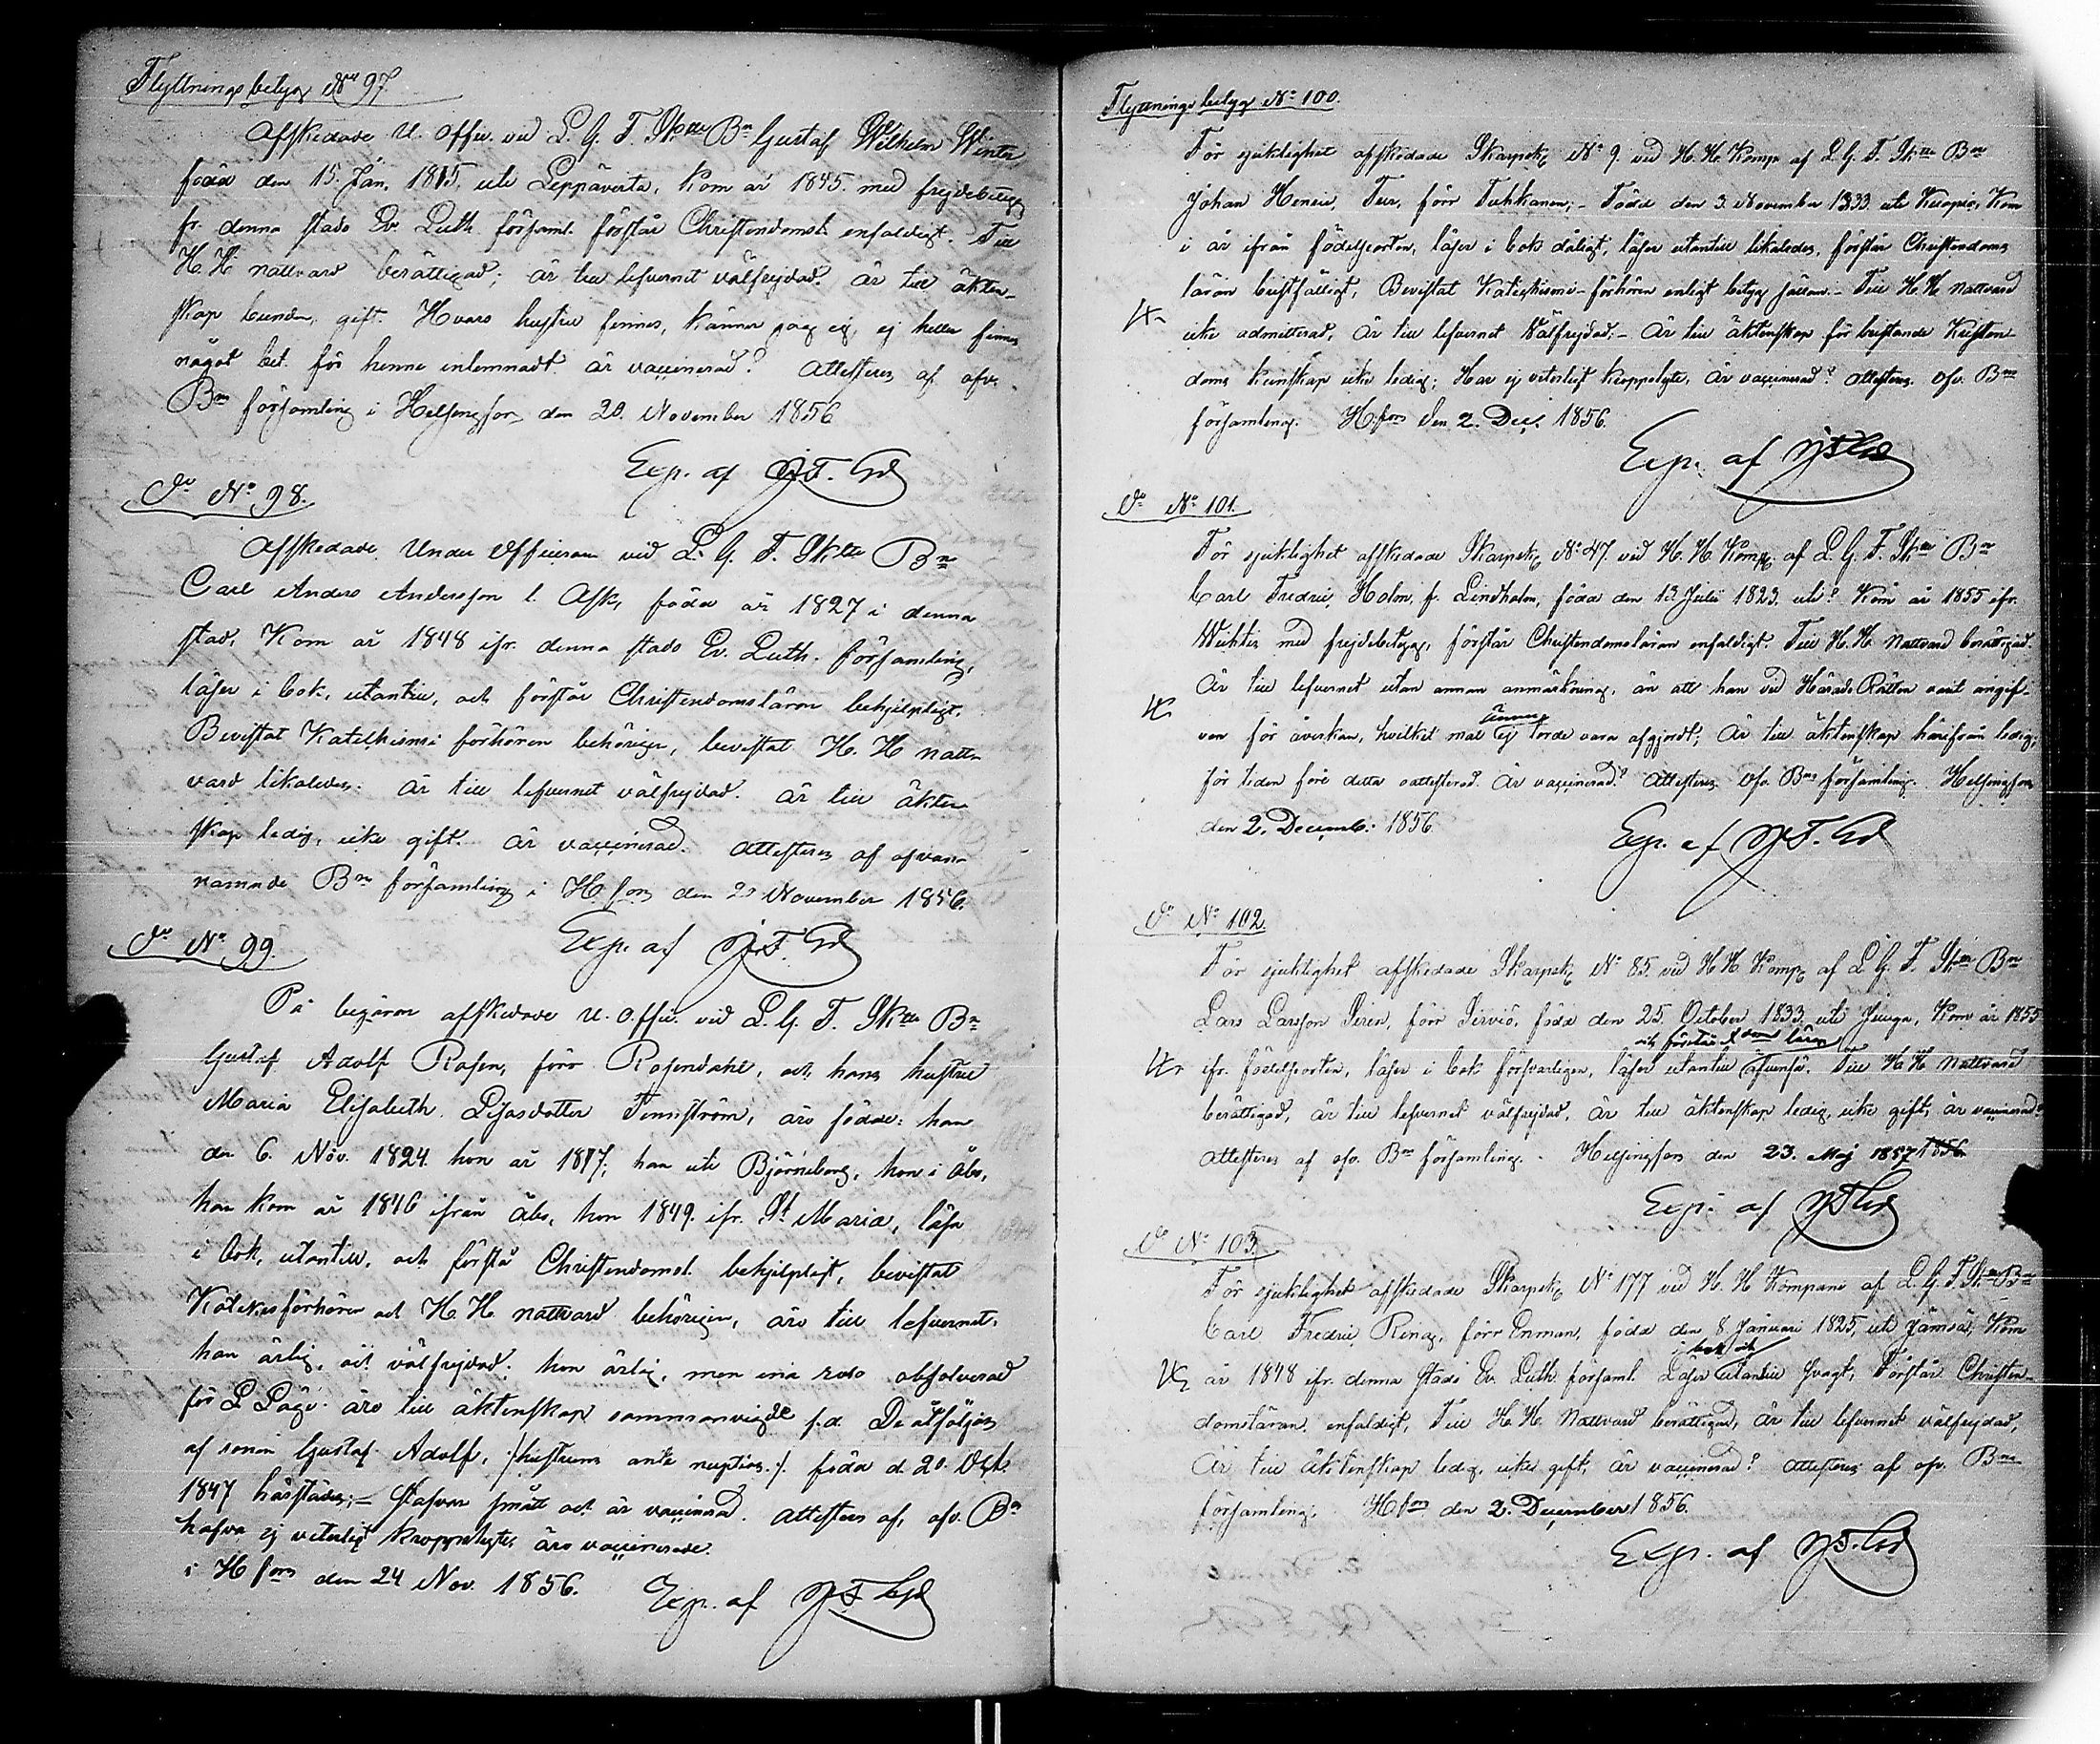 Flyttningsbetyg No 97.
Afskedade U. Offic. vid L. G. F. Sktte Bn Gustaf Wilhelm Winter
född den 15. Jan. 1815. uti Leppävirta, Kom år 1845. med frejdebetyg
fr. denna stads Ev. Luth. församl. förstår Christendomsl. enfaldigt. Till
H. H. nattvard berättigad; är till lefvernet välfrejdad. är till äkten-
skap bunden, gift. Hvars hustru finnes, känner jag ej, ej heller finnes
något bet. för henne inlemnadt är vaccinerad? Attesteras af ofv.
Bns församling i Helsingfors den 20. November 1856
Exp. af
Do No 98.
Afskedade Under Officeren vid L. G. F. Sktte Bn
Carl Anders Andersson l. Ask, född år 1827 i denna
stad, Kom år 1848 ifr. denna stads Ev. Luth. församling,
läser i bok, utantill, och förstår Christendomsläran behjelpligt.
Bevistat Katekismi förhören behörigen, bevistat H. H natt-
vard likaledes. är till lefvernet välfrejdad. är till äkten-
skap ledig, icke gift. är vaccinerad. Attesteras af ofvan-
nämnde Bns församling i H:fors den 2 November 1856.
Exp. af
Do No 99.
På begäran afskedade U. Offic. vid L. G. F. Sktte Bn
Gustaf Adolf Rosen, förr Rosendahl, och hans hustru
Maria Elisabeth Finnström, äro födde: han
den 6. Nov. 1824. hon år 1817; han uti Björneborg, hon i Åbo,
han kom år 1846 ifrån Åbo, hon 1849. ifr. St Maria, läsa
i bok, utantill, och förstå Christendomsl. behjelpligt, bevistat
Kateketsförhören och H. H. nattvard behörigen, äro till lefvernet,
han ärlig, och välfrejdad; hon ärlig, men absolverad
för L Läge. äro till äktenskap sammanvigde De åtföljas
af sonen Gustaf Adolf, /: hustruns ante nuptias :/ född d. 20. Oct.
1847 härstädes; – stafvar smått och är vaccinerad. Attesteras af, ofv. Bn
hafva ej veterligt kroppslyte, äro vaccinerade.
i H:fors den 24 Nov. 1856.
Exp. af
Flyttningsbetyg No 100.
För sjuklighet afskedade Skarpsk. No 9. vid H. H. Komp. af L. G. F. Sktte Bn
Johan förr Tuhkanen; – Född den 3. November 1833. uti Kuopio, Kom
i år ifrån födelseorten, läser i bok dåligt, läser utantill likaledes, förstår Christendoms
läran bristfälligt, Bevistat Katechismi-förhören enligt betyg sällan. – Till H. H. nattvard
icke admitterad, är till lefvernet välfrejdad. – är till äktenskap för bristande Kristen-
doms kunskap icke ledig; Har ej veterligt kroppslyte, är vaccinerad? Attesteras. ofv. Bns
församling. H:fors den 2. Dec. 1856.
Exp. af
Do No 101.
För sjuklighet afskedade Skarpsk. No 47. vid H. H Komp. af L. G. F. Sktte Bn
Carl Fredric Holm, f. Lindholm, född den 13 Julii 1823. uti? Kom år 1855 ifr.
Wichtis med frejdebetyg, förstår Christendomsläran enfaldigt. Till H. H. Nattvard berättigad.
är till lefvernet utan annan anmärkning, än att han vid Härads Rätten varit angif-
ven för åverkan, hvilket mål ännu ej torde vara afgjordt; är till äktenskap härifrån ledig,
för tiden före detta oattesterad. är vaccinerad? Attesteras ofv. Bns församling. Helsingfors
den 2. Decemb. 1856.
Exp. af
Do No 102.
För sjuklighet afskedade Skarpsk. No 85. vid H H. Komp. af L. G. F. Sktte Bn
Lars Larsson Siren, förr Sirviö, född den 25. October 1833. uti Juuga, Kom år 1855
ifr. födelseorten, läser i bok försvarligen, läser utantill och förstår läran Till H H. Nattvard
berättigad, är till lefvernet välfrejdad, är till äktenskap ledig, icke gift, är vaccinerad?
Attesteras af ofv. Bns församling. – Helsingfors den 23. Maj 1857 1856.
Exp. af
Do No 103.
För sjuklighet afskedade Skarpsk. No 177 vid H. H Kompani af L. G. F. Skte Bn
Carl Fredric Ring, förr Enman, född den 8 Januari 1825, uti Jämsä, Kom
år 1848 ifr. denna stads Ev. Luth. församl. Läser i bok och utantill svagt, Förstår Christen-
domsläran enfaldigt, Till H. H. Nattvard berättigad, är till lefvernet välfrejdad,
är till äktenskap ledig, icke gift, är vaccinerad? Attesteras af ofv. Bns
församling. H:fors den 2. December 1856.
Exp. af